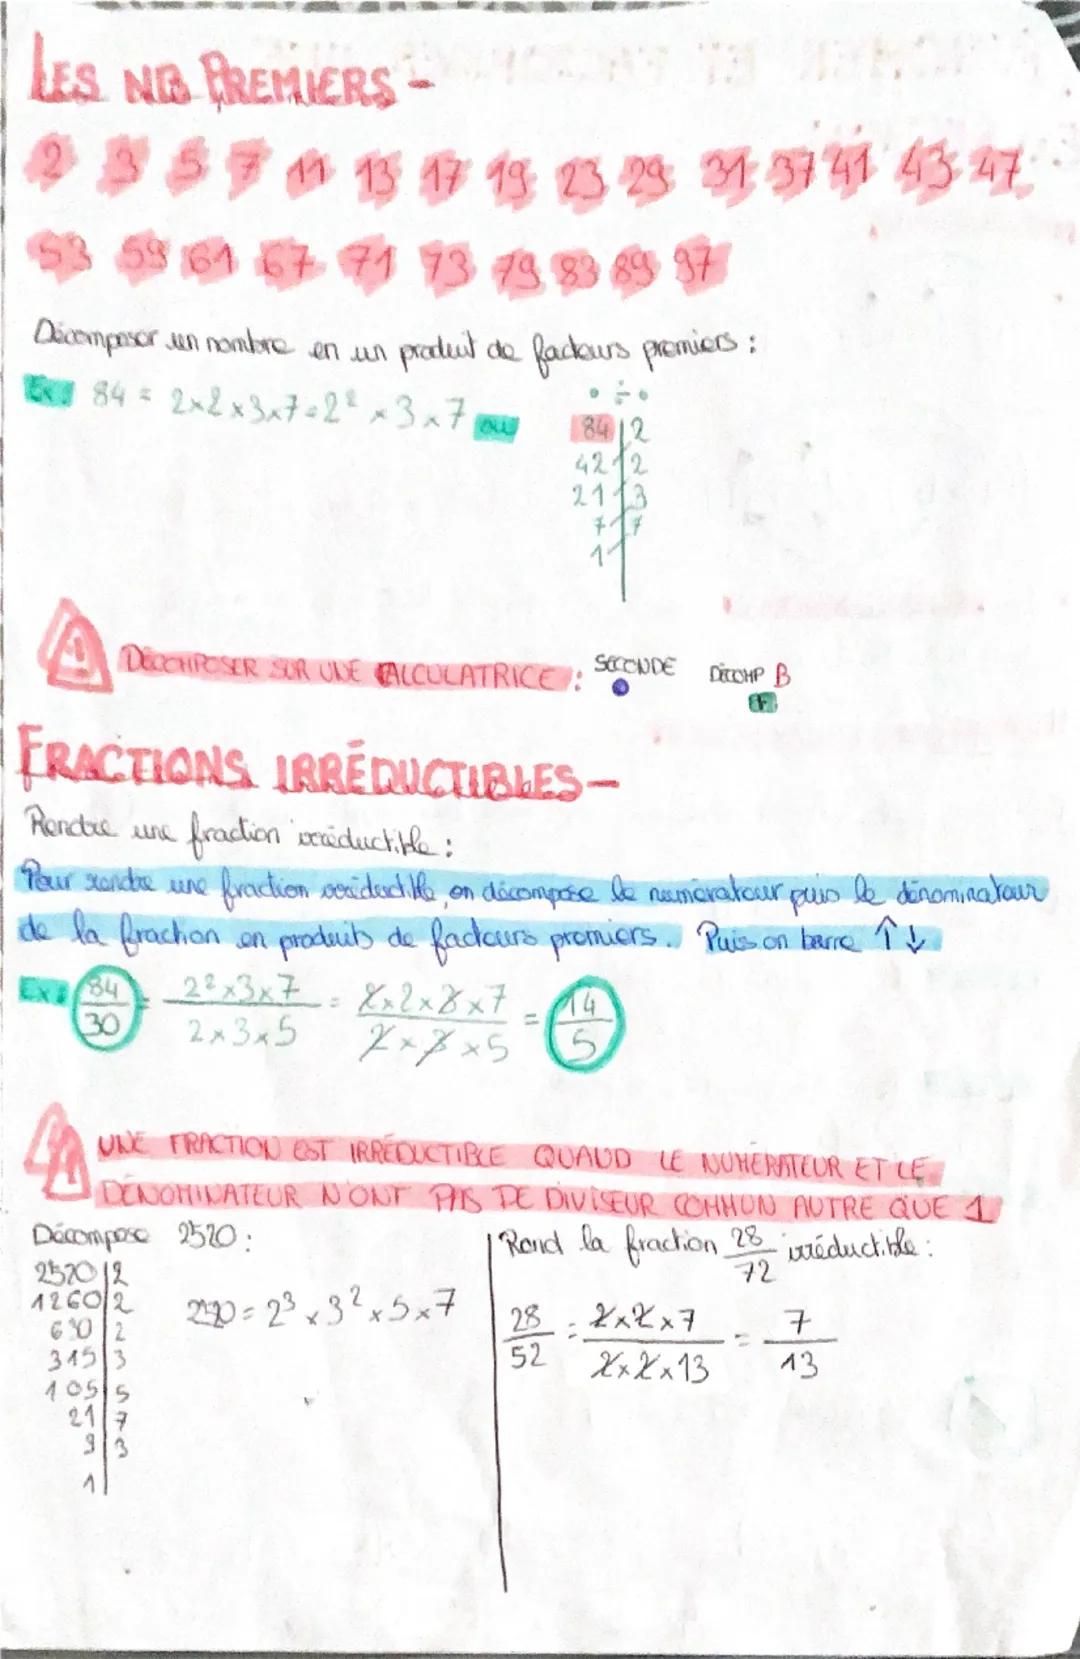 LES NB PREMIERS -
2 3 5 7 11 13 17 19 23 29 31 37 41 43 47
53 59 61 67 71 73 79 83 89 97
Décomposer un nombre en un produit de facteurs premiers :
Ex : 84 = 2×2×3×7 = 2² × 3 × 7 ou
• ÷ •
84 | 2
42 | 2
21 | 3
7 | 7
1 |
! DÉCOMPOSER SUR UNE CALCULATRICE : SECONDE DÉCOMP B
+
FRACTIONS IRRÉDUCTIBLES -
Rendre une fraction irréductible :
Pour rendre une fraction irréductible, on décompose le numérateur puis le dénominateur
de la fraction en produits de facteurs premiers. Puis on barre ↑↓
Ex : 84/30 = 2²×3×7 / 2×3×5 = 2×2×3×7 / 2×3×5 = 14/5
! UNE FRACTION EST IRRÉDUCTIBLE QUAND LE NUMÉRATEUR ET LE
DÉNOMINATEUR N'ONT PAS DE DIVISEUR COMMUN AUTRE QUE 1
Décompose 2520 :
2520 | 2
1260 | 2
630 | 2
315 | 3
105 | 5
21 | 7
3 | 3
1 |
2520 = 2³ × 3² × 5 × 7
Rend la fraction 28/72 irréductible :
28/52 = 2×2×7 / 2×2×13 = 7/13